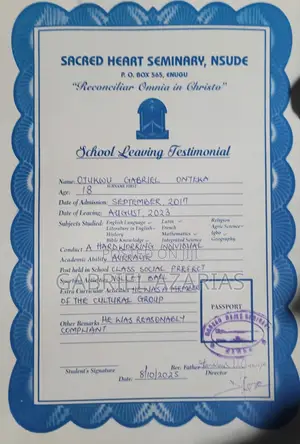 SACRED HEART SEMINARY, NSUDE
P. O. BOX 565, ENUGU
"Reconciliar Omnia in Christo"
School Leaving Testimonial
Name: OJUKWU GABRIEL ONYEKA
SURNAME FIRST
Age: 18
Date of Admission: SEPTEMBER 2017
Date of Leaving: AUGUST, 2023
Subjects Studied: English Language – Latin – Religion
Literature in English– French Agric Science–
History Mathematics – Igbo –
Bible Knowledge– Integrated Science Geography
Conduct A HARDWORKING INDIVIDUAL
Academic Ability: AVERAGE
Post held in School CLASS SOCIAL PREFECT
Sporting Activities FOOT BALL
Extra Curricular Activities HE WAS A MEMBER
OF THE CULTURAL GROUP
Other Remarks HE WAS REASONABLY
COMPLIANT
PASSPORT
SACRED HEART SEMINARY
NSUDE
Student's Signature
Rev. Father
Director
Date: 8/10/2025
AZARIAS